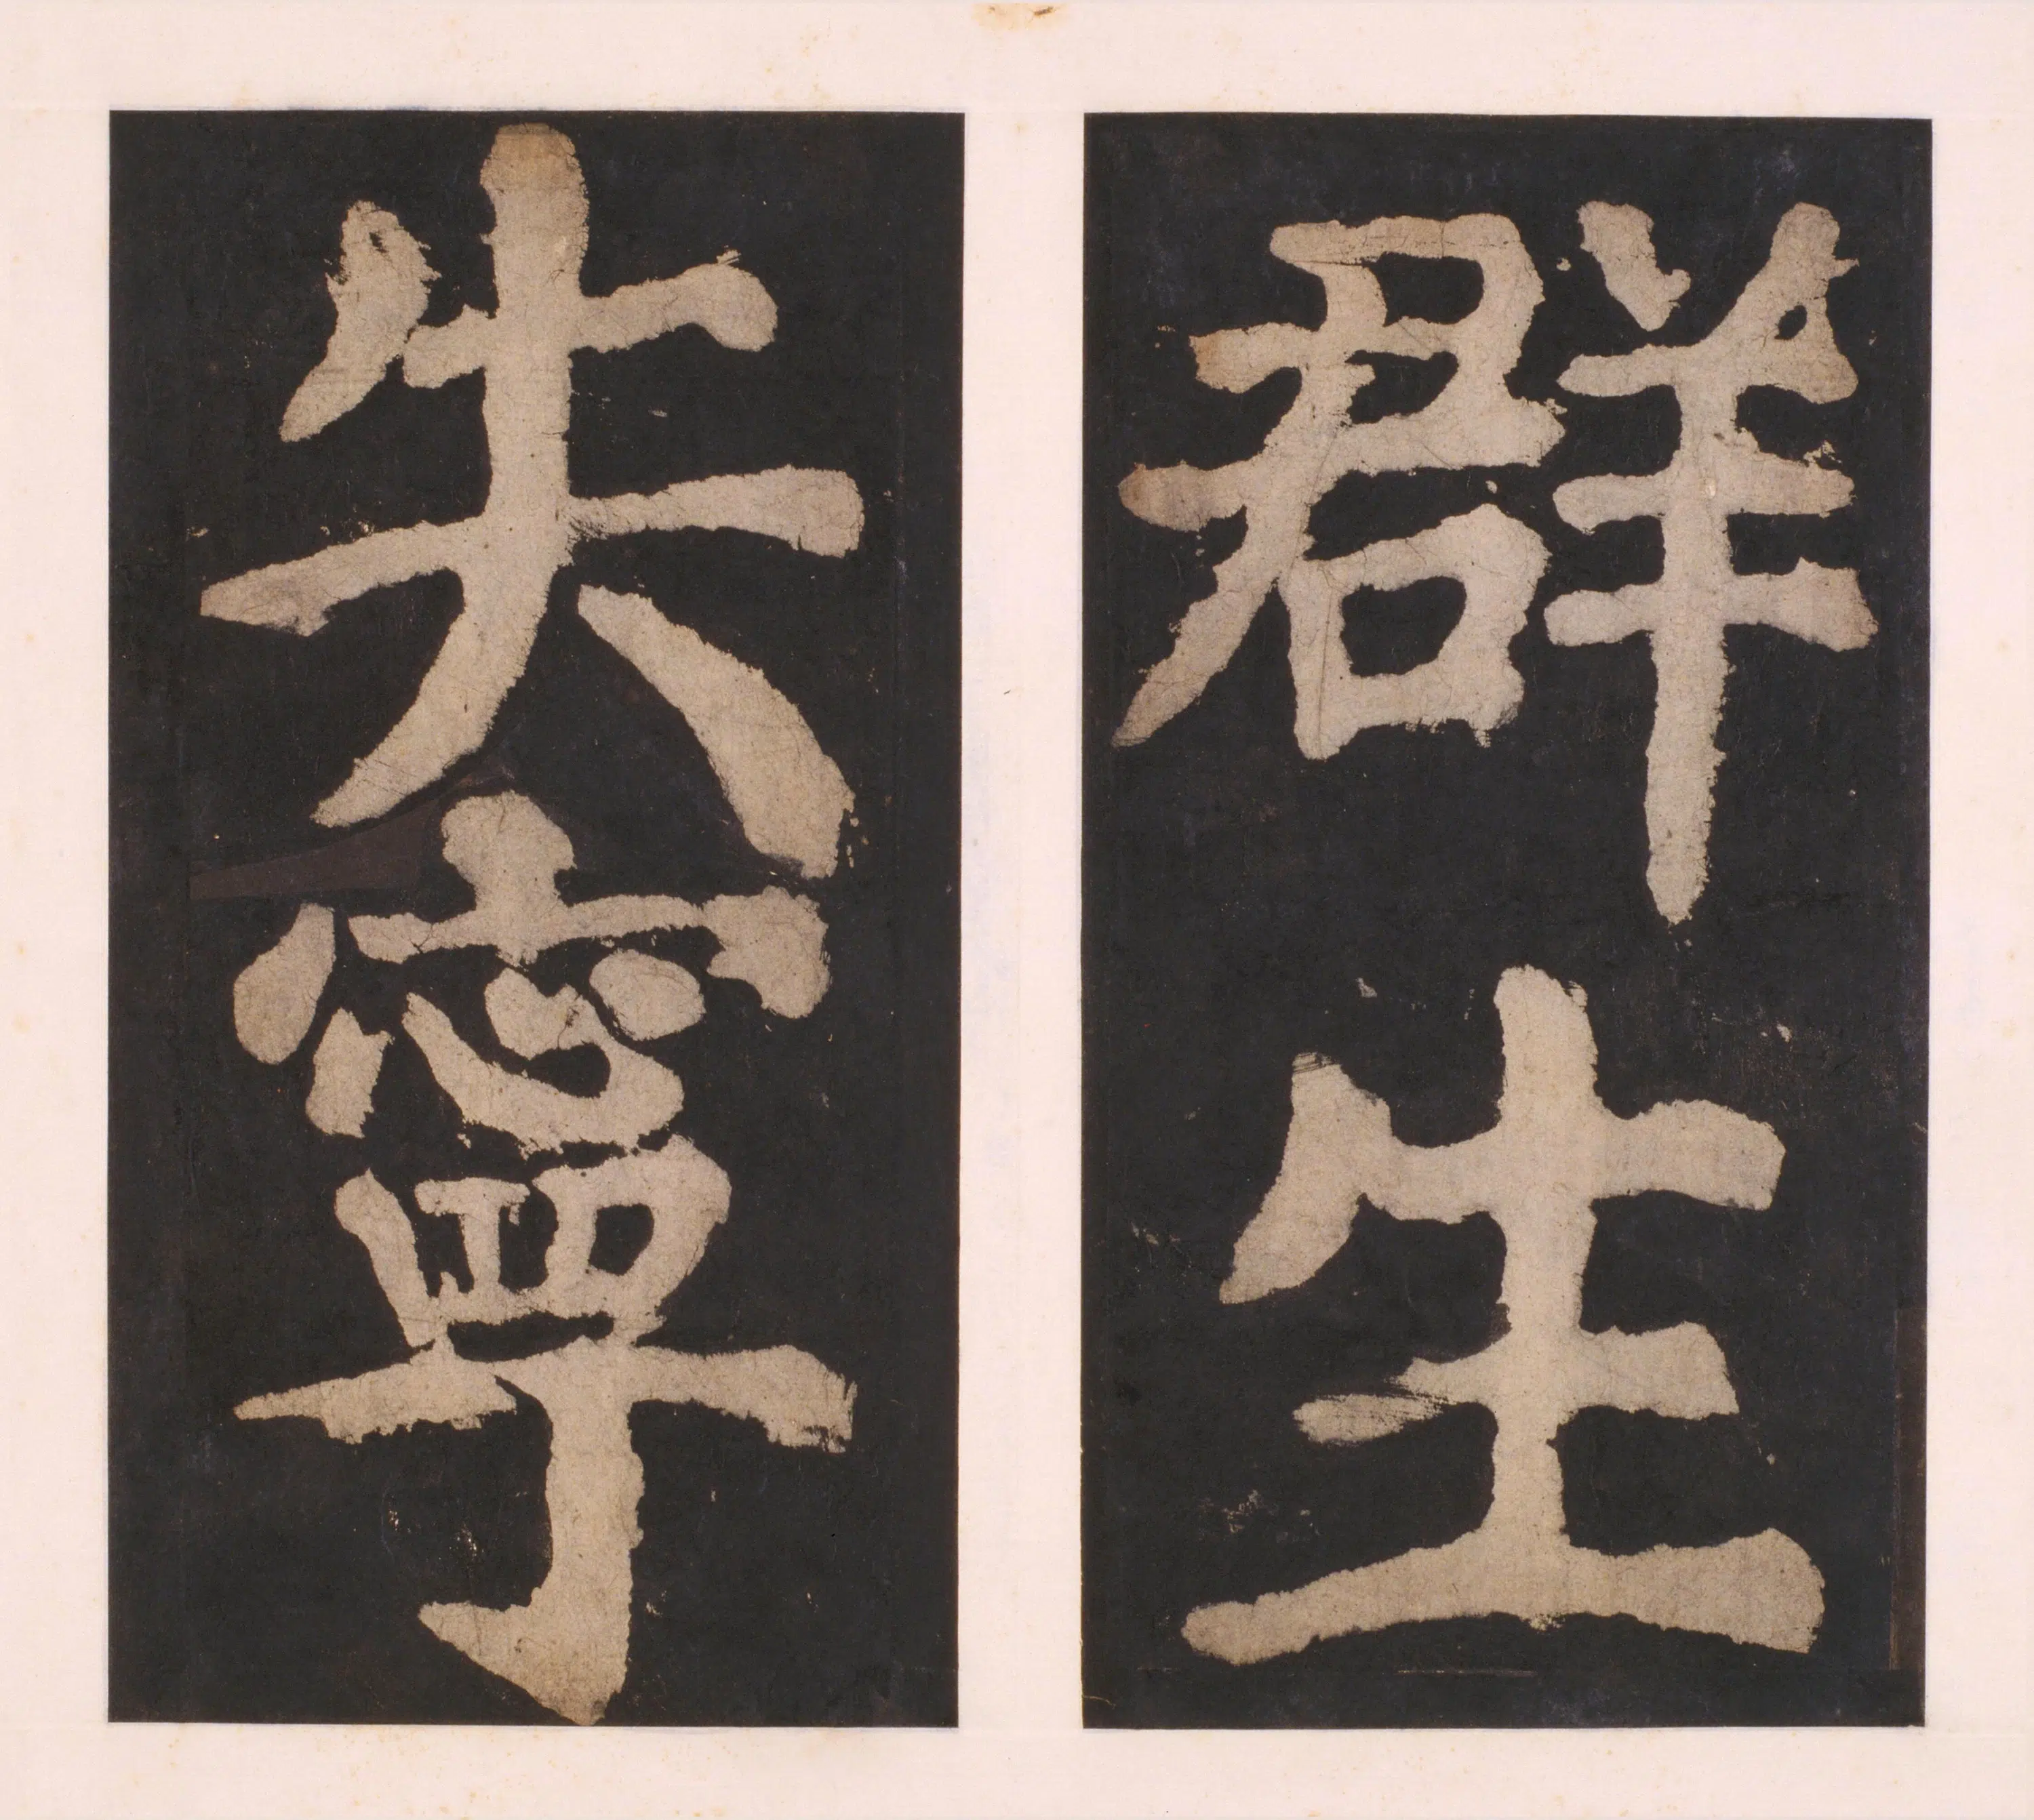 群生
失寧